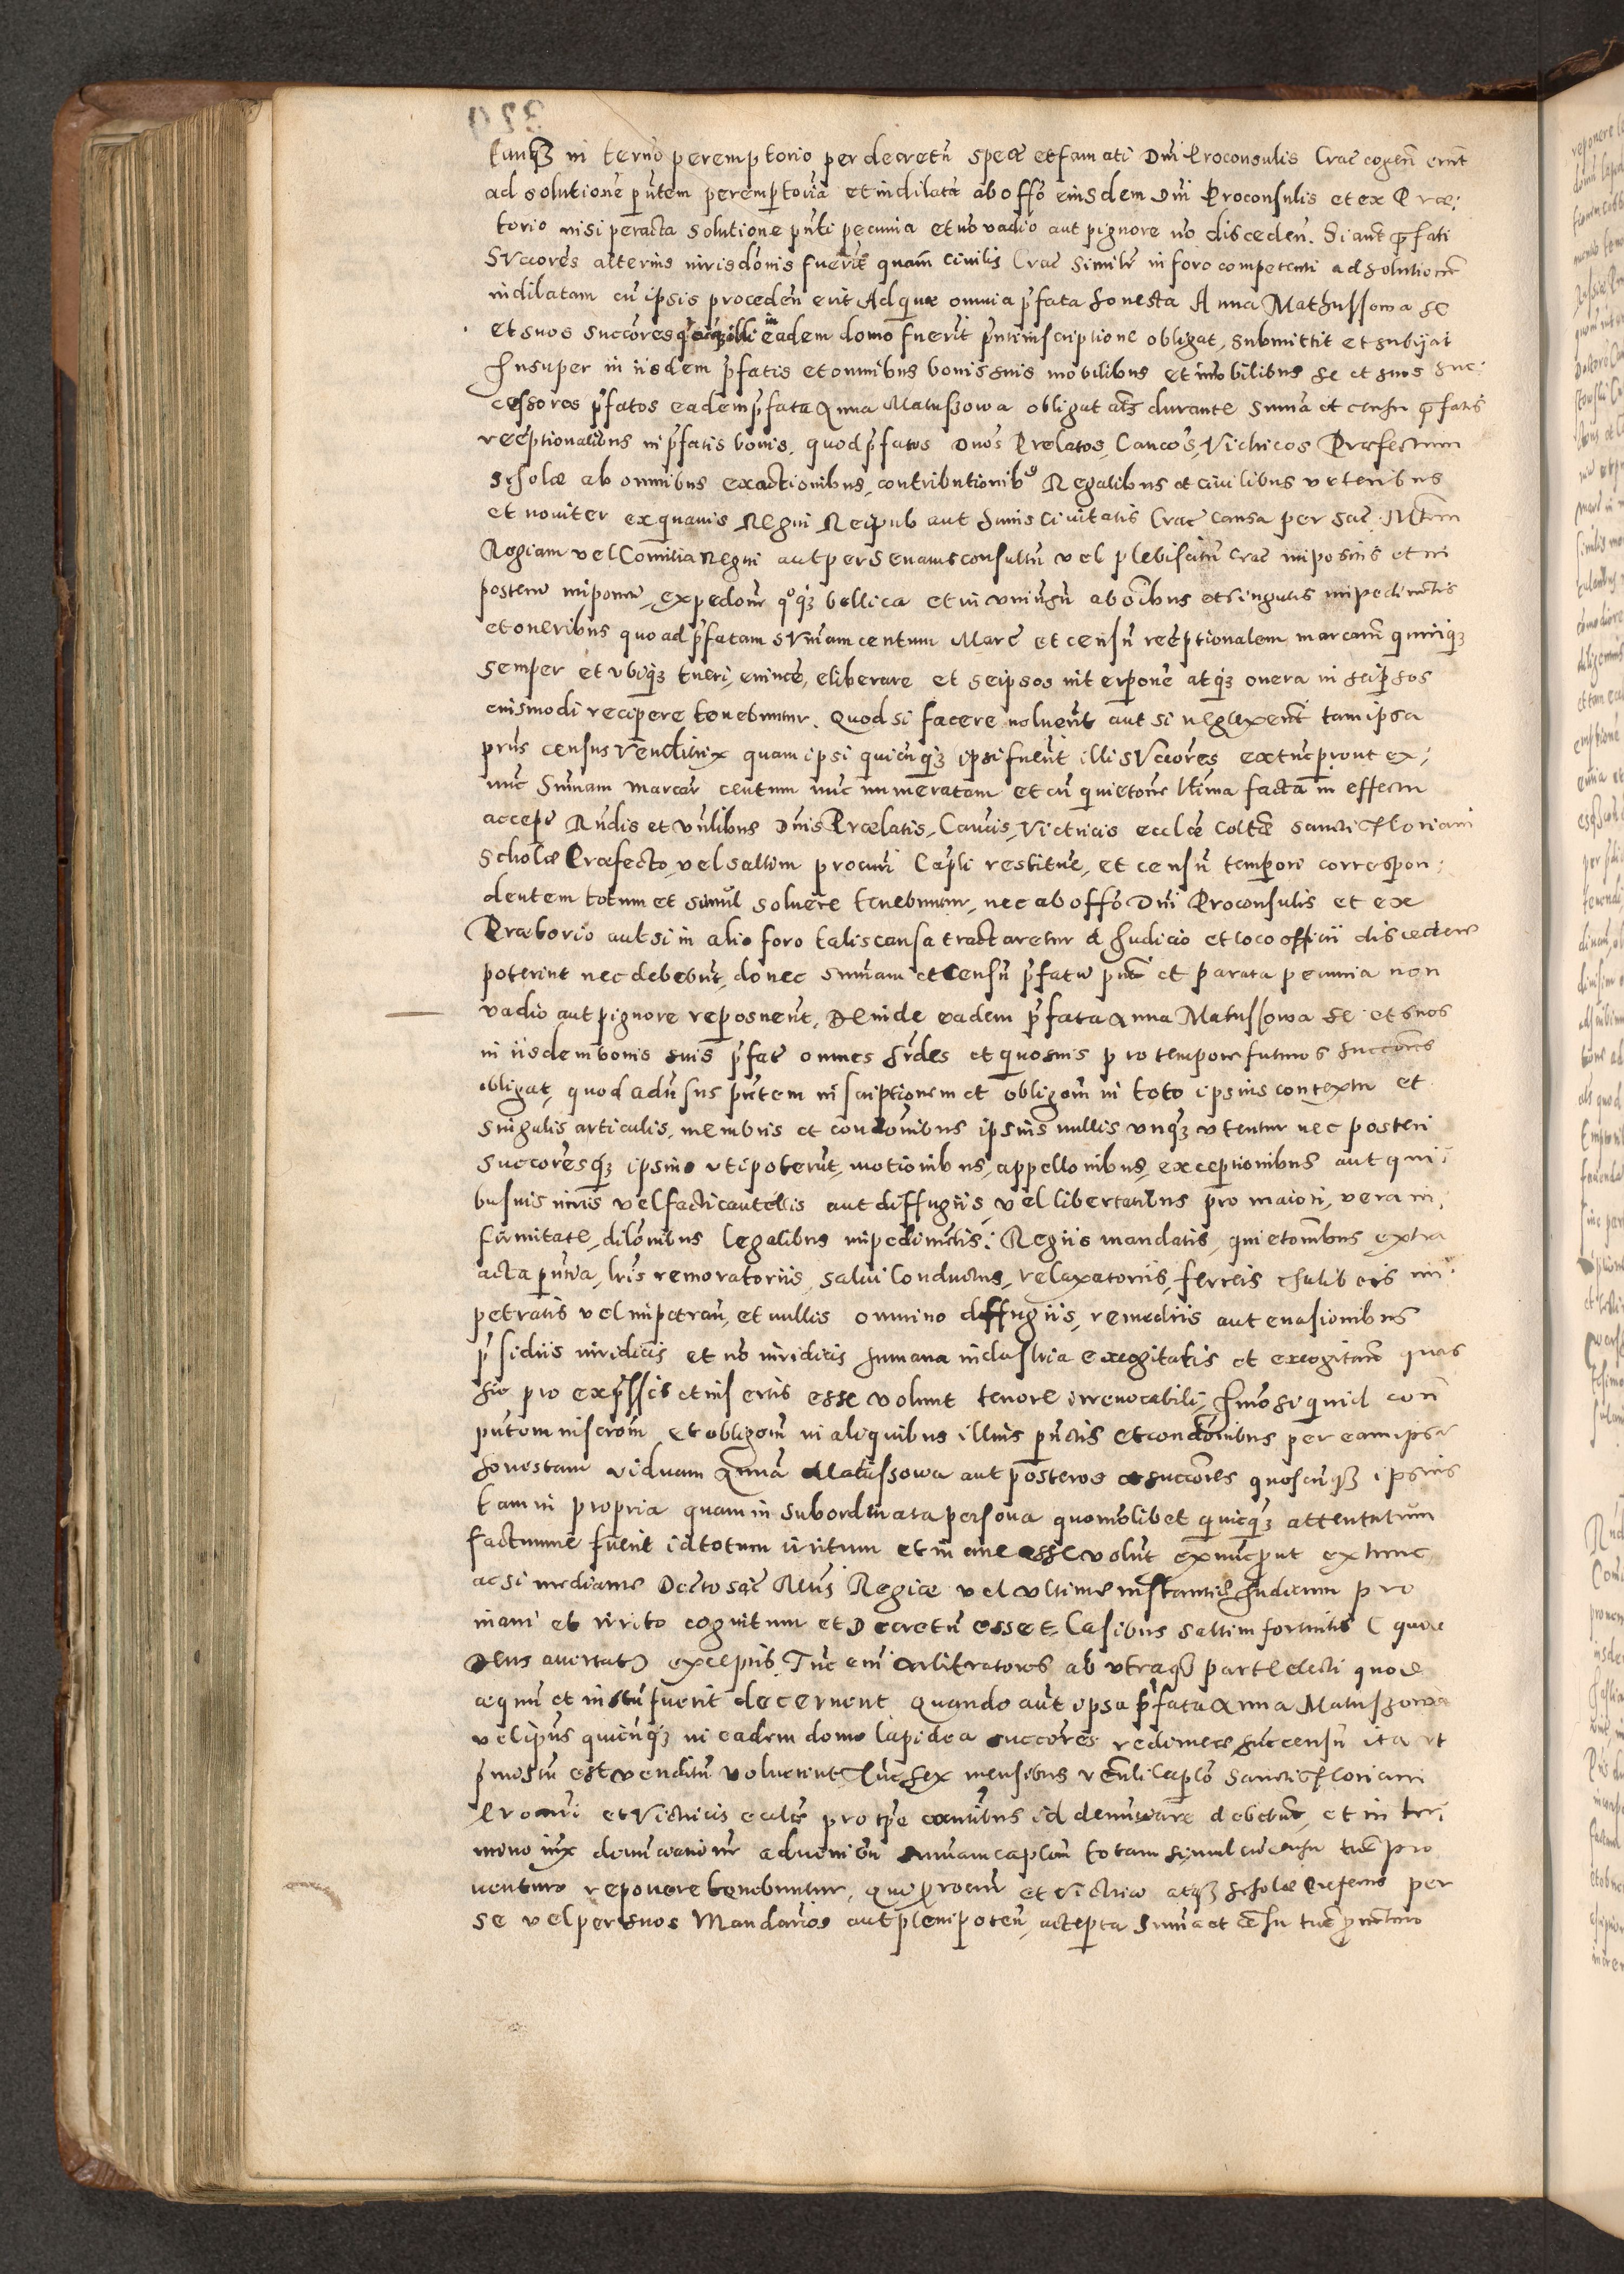 tanq3 in termo peremptorio per decretu spect et famati Dni Proconsulis Crac cogen erut
ad solutione pntem peremptoria et indilata ab offo eiusdem Dni Proconsulis et ex Præ:
torio nisi peracta solutione pnti pecunia et no vadio aut pignore no disceden. Si aut p̄fati
Succores alterius iurisdonis fuerit quam civilis Crac similr in foro competenti ad solutione
indilatam cu ipsis proceden erit Ad quæ omnia p̄fata honesta Anna Mathussowa se
et suos succores in eadem domo fuerit inscriptione obligat, submittit et subijcit
Insuper in iisdem p̄fatis et omnibus bonis suis mobilibus et imobilibus se et suos suc:
cessores p̄fatos eadem p̄fata Anna Matuszowa obligat durante suma et censu p̄fatis
reeptionalibus in p̄fatis bonis. quod p̄fatos Dnos Prelatos, Canco's, Victricos Præfectum
scholæ ab omnibus exactionibus, contributionib9 Regalibus et civilibus veteribus
et noviter ex quavis Regni Reipub aut huius Civitatis Crac causa per Sac Mtem
Regiam vel Comitia Regni aut per Senatusconsultu vel plebiscitu Crac impositis et in
posteru imponen, expedone qoq3 bellica et in universu ab oibus et singulis impedimetis
et oneribus quo ad p̄fatam sumam centum Marc et censu reeptionalem marcaru quinq3
semper et ubiq3 tueri, evince, eliberare et seipsos interpone atq3 onera in seipsos
eiusmodi recipere tenebuntur. Quod si facere noluerit aut si neglexerit tam ipsa
prius census venditrix quam ipsi quicuq3 ipsi fuerit illi succores extuc prout ex:
nuc Sumam marcar centum nuc numeratam et cu quietone llima facta in effectu
accept Rndis et Vnlibus Dnis Prælatis, Cancis, Victricis ecclæ Coltæ Sancti Floriani
Scholæ Præfecto, vel saltim procuri Capli restitue, et censu tempori correspon:
dentem totum et simul solvere tenebuntur, nec ab offo Dni Proconsulis et ex
Prætorio aut si in alio foro talis causa tractaretur a Iudicio et loco officii discedere
poterint nec debebut, donec sumam et censu p̄fatu pnti et parata pecunia non
vadio aut pignore reposuerit. Deinde eadem p̄fata Anna Matussowa se et suos
in iisdem bonis suis p̄fat omnes hrdes et quosvis pro tempore futuros succores
obligat, quod adusus pntem inscriptionem et obligom in toto ipsius contextu et
singulis articulis, membris et condonibus ipsius nullis vnq3 vtentur nec posteri
succoresq3 ipsius vti poterut, motionibus, appellonibus, exceptionibus aut qui:
busvis iuris vel facti cautelis aut diffugiis, vel libertatibus pro maiori, vera in:
firmitate, dilonibus legalibus impedimetis: Regiis mandatis, quietonibus extra
acta, lris remoratoriis, salvi Conductus, relaxatoriis, ferreis im:
petratis vel impetran, et nullis omnino diffugiis, remediis aut evasionibus
p̄sidiis iuridicis et no iuridicis humana industria excogitatis et excogitan quas
hic pro exp̄ssis et insertis esse volunt tenore irrevocabili, Imo si quid con
pntem inscrom et obligom in aliquibus illius punctis et condonibus per eam ipsa
honestam viduam Anna Matussowa aut posteros succores quoscuq3 ipsius
tam in propria quam in subordinata persona quomolibet quicq3 attentatum
factumve fuerit id totum irritum et inane esse volut exnuc put extunc
ac si mediante Dcto Sac Mtis Regiæ vel ultime instantie Iudicum pro
inani et irrito cognitum et Decretu esset. Casibus saltim fortuitis (quod
Deus avertat) exceptis. Tuc eni arbitratores ab utraq3 parte electi quod
æquu et iustu fuerit decernent Quando aut ipsa p̄fata Anna Matuszowa
vel ipsius quicuq3 in eadem domo lapidea succores redimere huc censu ita ut
p̄missu est venditu voluerint Tuc sex mensibus venli Caplo Sancti Floriani
Procuri et Victricis eccle pro tpe exntibus id denutiare debebut, et in ter:
mino iux denutiatione advenien sumam caplem totam simul cu censu tuc pro
venturo reponere tenebuntur, quiq procur et Victrico atq3 Scholæ Prefectus per
se vel per suos Mandatarios aut plenipoten, accepta suma et cesu tuc proventuro